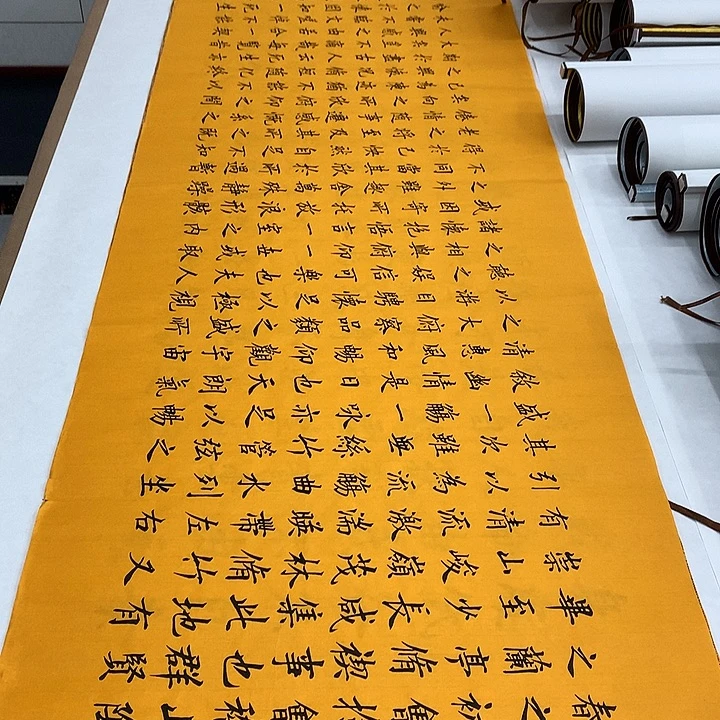 春之初會於會稽山陰
之蘭亭脩禊事也群賢
畢至少長咸集此地有
崇山峻嶺茂林脩竹又
有清流激湍暎帶左右
引以為流觴曲水列坐
其次雖無絲竹管弦之
盛一觴一詠亦足以暢
敘幽情是日也天朗氣
清惠風和暢仰觀宇宙
之大俯察品類之盛所
以遊目騁懷足以極視
聽之娛信可樂也夫人
之相與俯仰一世或取
諸懷抱悟言一室之內
或因寄所託放浪形骸
之外雖趣舍萬殊靜躁
不同當其欣於所遇暫
得於己快然自足不知
老之將至及其所之既
倦情隨事遷感慨係之
矣向之所欣俯仰之間
已為陳跡猶不能不以
之興懷況脩短隨化終
期於盡古人云死生亦
大矣豈不痛哉每覽昔
人興感之由若合一契